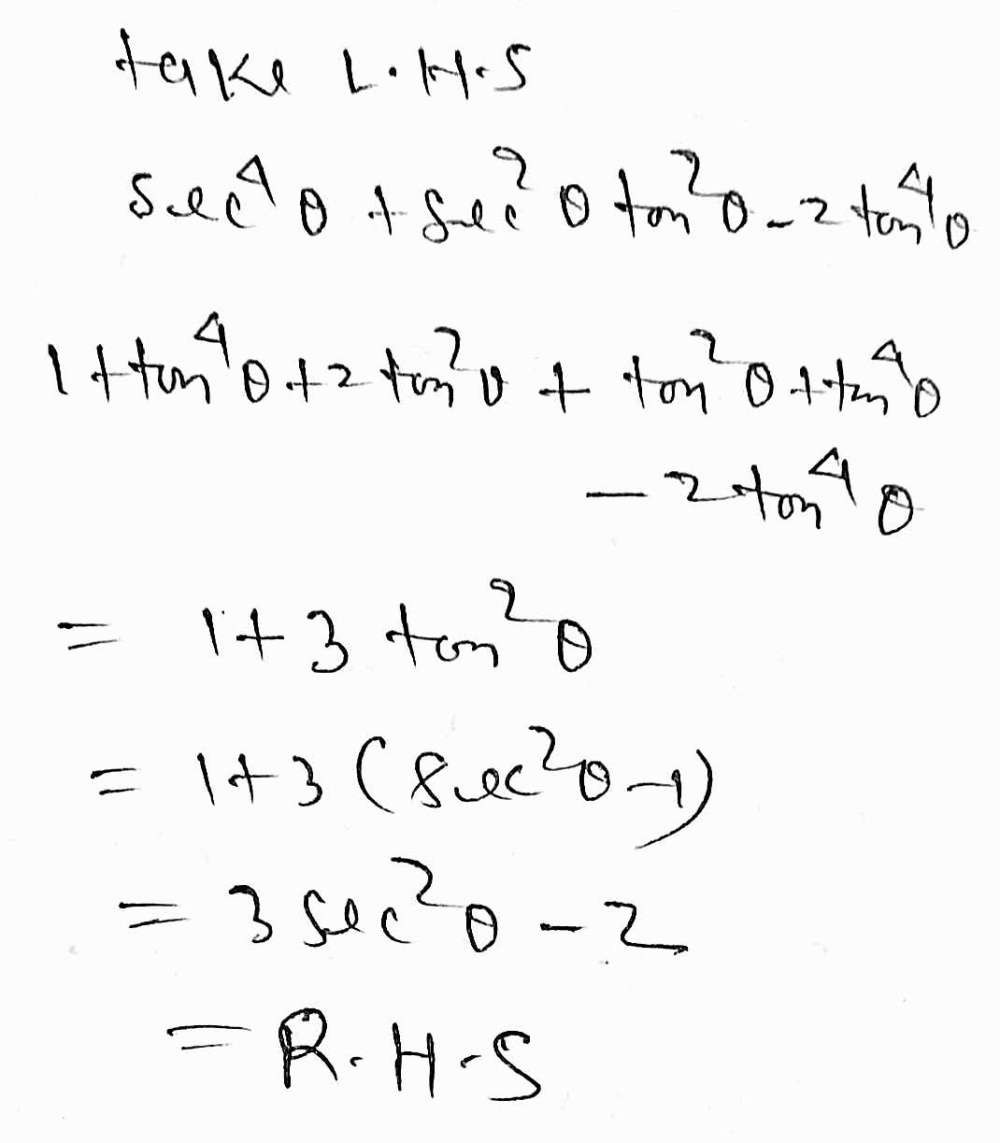 take L.H.S
sec⁴θ + sec²θ tan²θ - 2 tan⁴θ
1 + tan⁴θ + 2 tan²θ + tan²θ + tan⁴θ
- 2 tan⁴θ
= 1+3 tan²θ
= 1+3 (sec²θ-1)
= 3 sec²θ - 2
= R.H.S